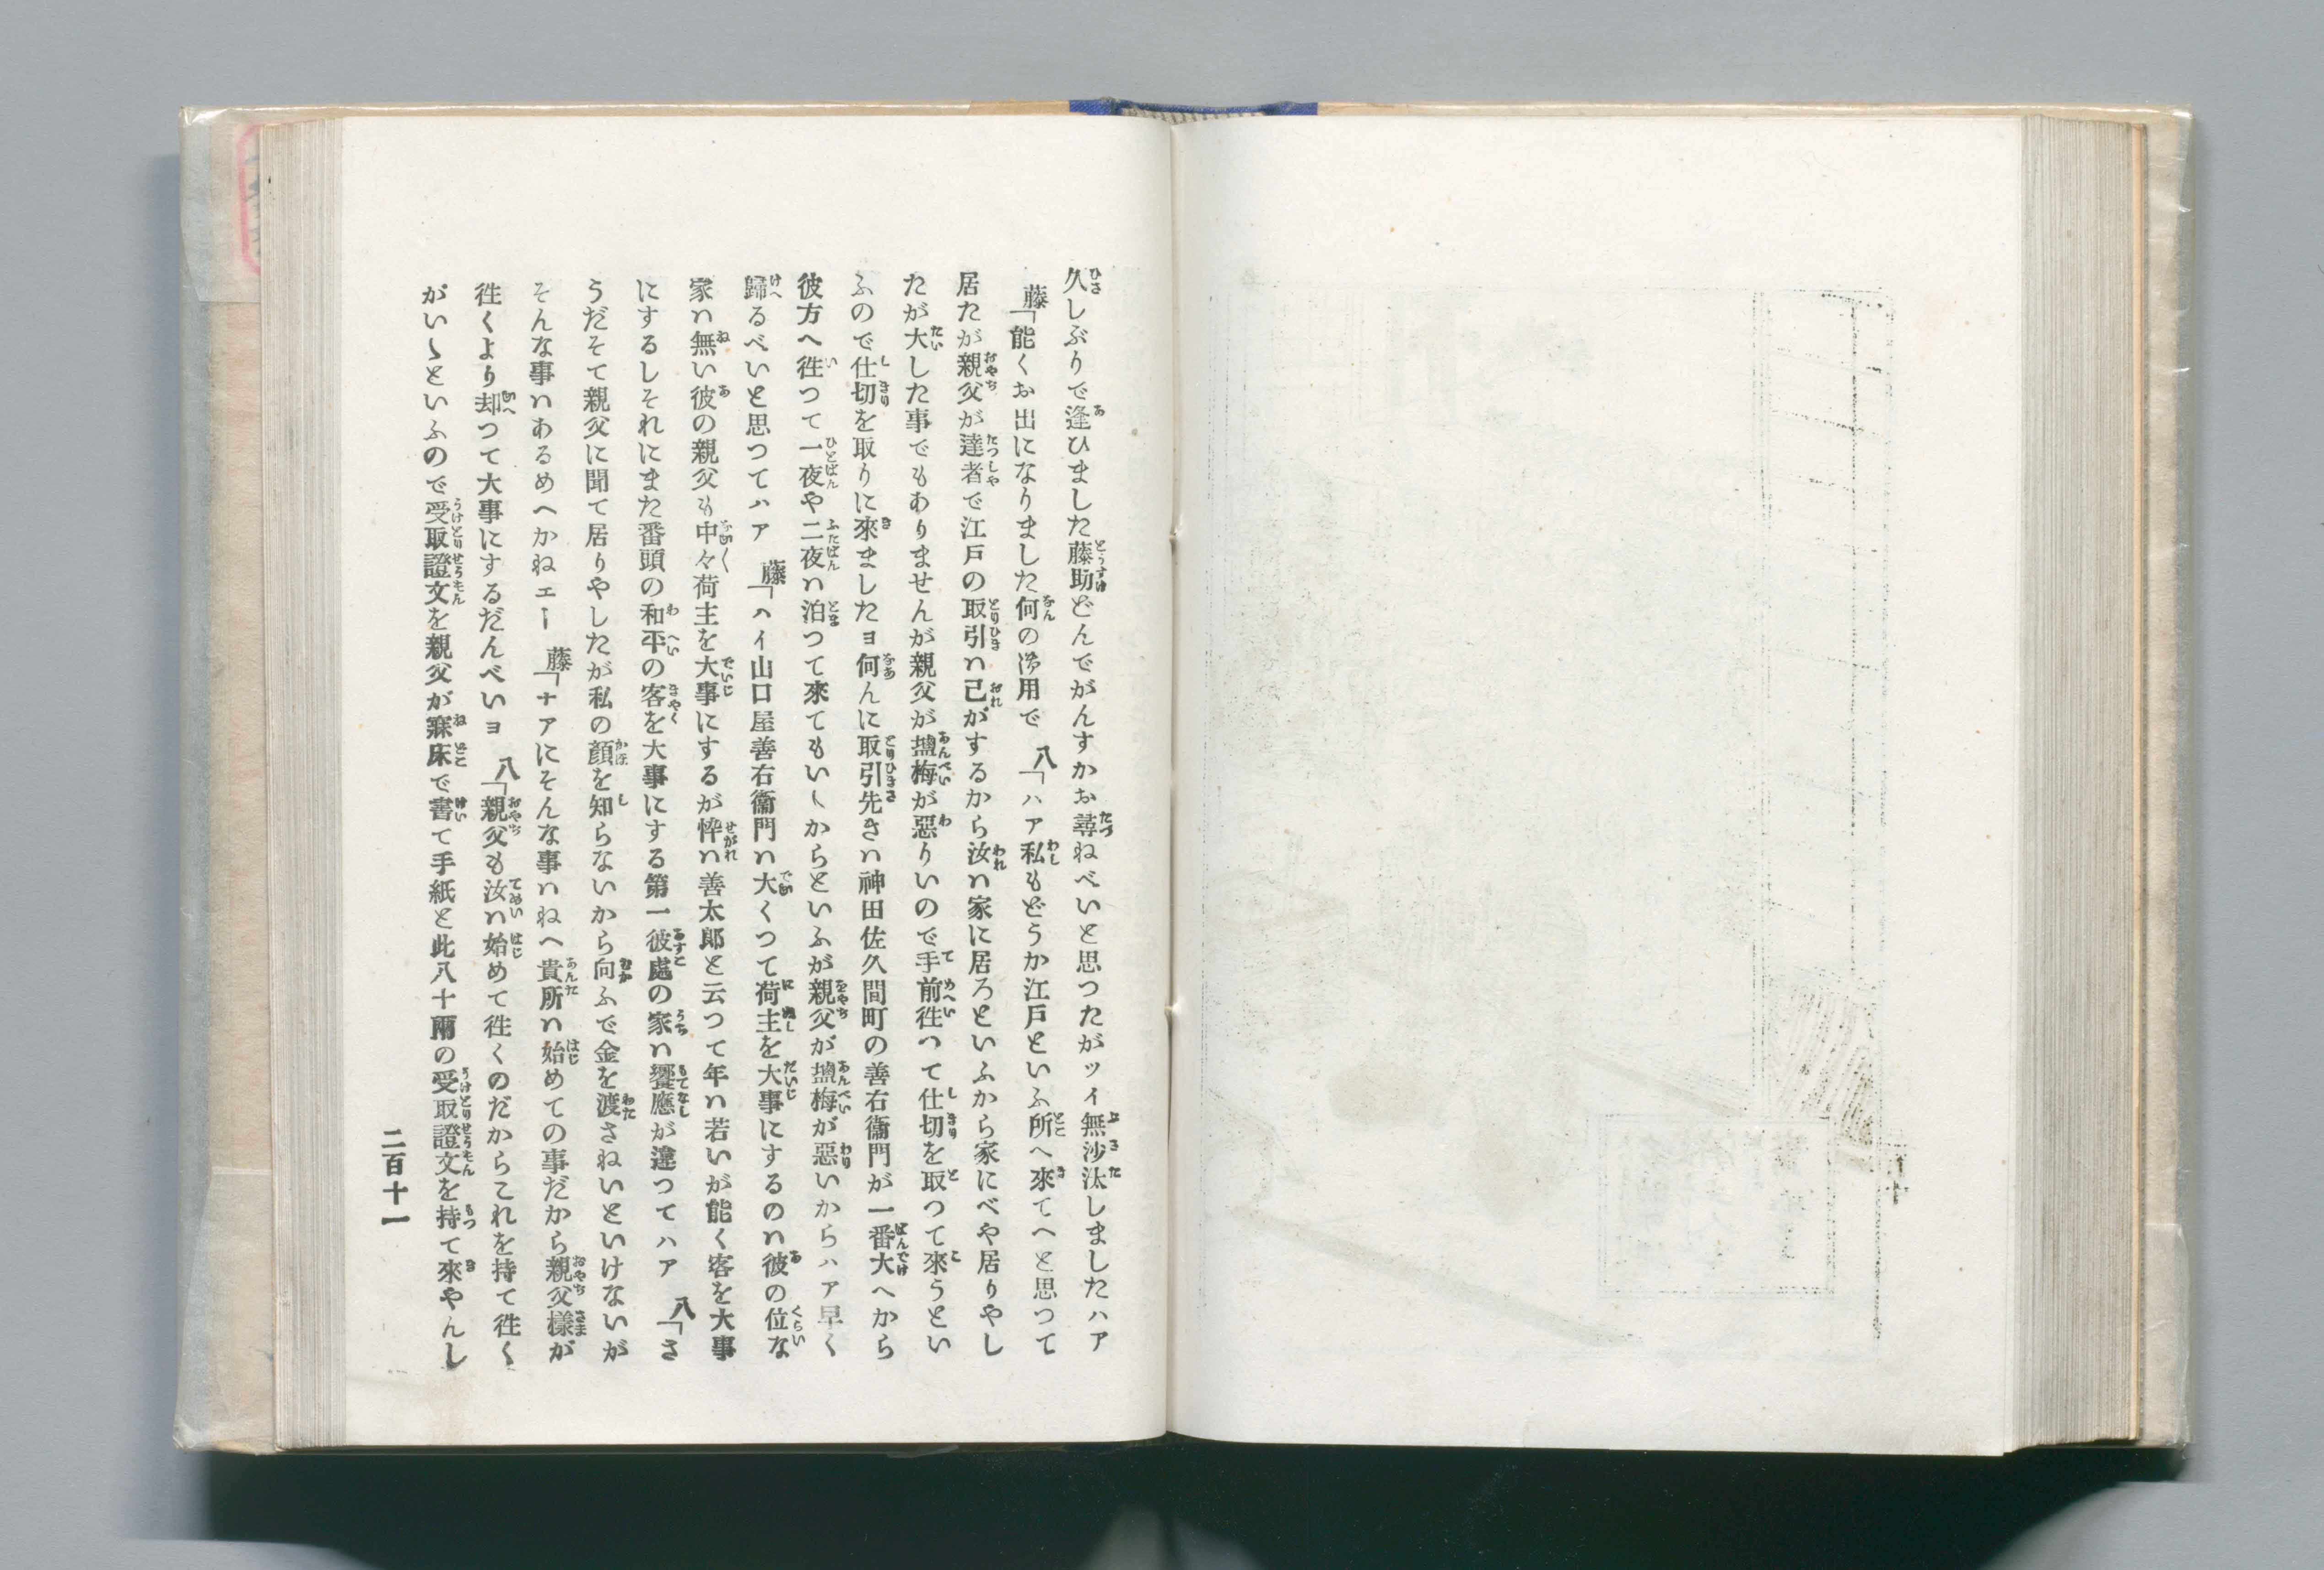 久しぶりで逢ひました藤助どんでがんすかお尋ねべいと思つたがツイ無沙汰しましたハア
藤「能くお出になりました何の御用で　八「ハア私もどうか江戸といふ所へ來てへと思つて
居たが親父が達者で江戸の取引ハ己がするから汝ハ家に居ろといふから家にべや居りやし
たが大した事でもありませんが親父が塩梅が惡りいので手前徃つて仕切を取つて來うとい
ふので仕切を取りに來ましたヨ何んに取引先きハ神田佐久間町の善右衞門が一番大へから
彼方へ徃つて一夜や二夜ハ泊つて來てもいゝからといふが親父が塩梅が惡いからハア早く
歸るべいと思つてハア　藤「ハイ山口屋善右衞門ハ大くつて荷主を大事にするのハ彼の位な
家ハ無い彼の親父も中々荷主を大事にするが悴ハ善太郎と云つて年ハ若いが能く客を大事
にするしそれにまた番頭の和平の客を大事にする第一彼處の家ハ饗應が違つてハア　八「さ
うだそて親父に聞て居りやしたが私の顔を知らないから向ふで金を渡さねいといけないが
そんな事ハあるめへかねエー　藤「ナアにそんな事ハねへ貴所ハ始めての事だから親父樣が
徃くより却つて大事にするだんべいヨ　八「親父も汝ハ始めて徃くのだからこれを持て徃く
がいゝといふので受取證文を親父が寐床で書て手紙と此八十兩の受取證文を持て來やんし
二百十一